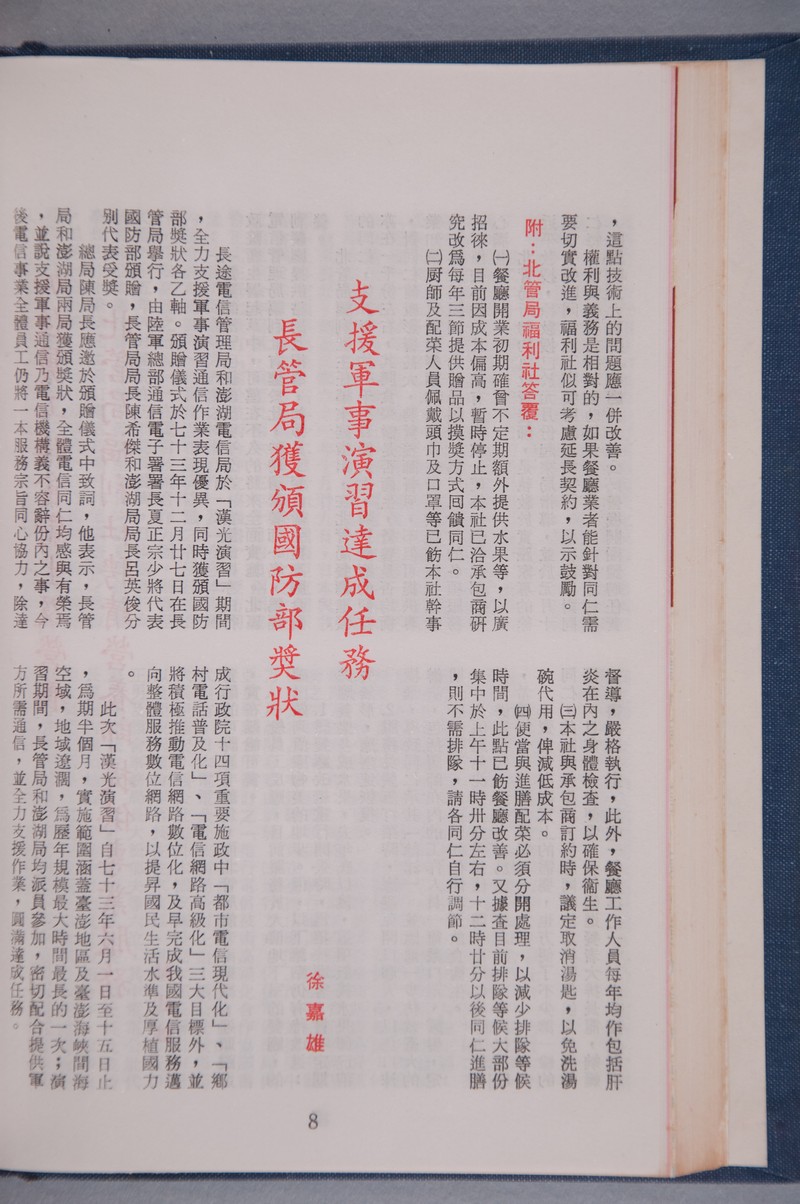 ，這點技術上的問題應一併改善。
權利與義務是相對的，如果餐廳業者能針對同仁需
要切實改進，福利社似可考慮延長契約，以示鼓勵。
附：北管局福利社答覆：
㈠餐廳開業初期確曾不定期額外提供水果等，以廣
招徠，目前因成本偏高，暫時停止，本社已洽承包商研
究改爲每年三節提供贈品以摸獎方式回饋同仁。
㈡厨師及配菜人員佩戴頭巾及口罩等已飭本社幹事
督導，嚴格執行，此外，餐廳工作人員每年均作包括肝
炎在內之身體檢查，以確保衞生。
㈢本社與承包商訂約時，議定取消湯匙，以免洗湯
碗代用，俾減低成本。
㈣便當與進膳配菜必須分開處理，以減少排隊等候
時間，此點已飭餐廳改善。又據查目前排隊等候大部份
集中於上午十一時卅分左右，十二時廿分以後同仁進膳
，則不需排隊，請各同仁自行調節。
支援軍事演習達成任務
長管局獲頒國防部獎狀
徐嘉雄
長途電信管理局和澎湖電信局於「漢光演習」期間
，全力支援軍事演習通信作業表現優異，同時獲頒國防
部獎狀各乙軸。頒贈儀式於七十三年十二月廿七日在長
管局舉行，由陸軍總部通信電子署署長夏正宗少將代表
國防部頒贈，長管局局長陳希傑和澎湖局局長呂英俊分
別代表受獎。
總局陳局長應邀於頒贈儀式中致詞，他表示，長管
局和澎湖局兩局獲頒獎狀，全體電信同仁均感與有榮焉
，並說支援軍事通信乃電信機構義不容辭份內之事，今
後電信事業全體員工仍將一本服務宗旨同心協力，除達
成行政院十四項重要施政中「都市電信現代化」、「鄉
村電話普及化」、「電信網路高級化」三大目標外，並
將積極推動電信網路數位化，及早完成我國電信服務邁
向整體服務數位網路，以提昇國民生活水準及厚植國力
。
此次「漢光演習」自七十三年六月一日至十五日止
，爲期半個月，實施範圍涵蓋臺澎地區及臺澎海峽間海
空域，地域遼濶，爲歷年規模最大時間最長的一次；演
習期間，長管局和澎湖局均派員參加，密切配合提供軍
方所需通信，並全力支援作業，圓滿達成任務。
8